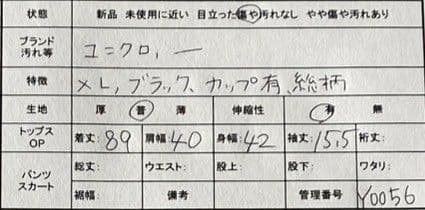 状態 新品 未使用に近い 目立った傷や汚れなし やや傷や汚れあり
ブランド 汚れ等 ユニクロ, ー
特徴 XL, ブラック、カップ有、総柄
生地 厚 普 薄 伸縮性 有 無
トップス OP 着丈:89 肩幅:40 身幅:42 袖丈:15.5 裄丈:
パンツ スカート 総丈: ウエスト: 股上: 股下: ワタリ:
裾幅: 備考 管理番号 Y0056